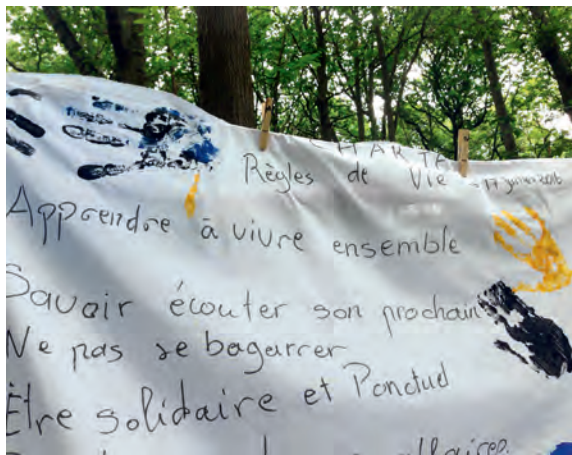 CHARTA
Règles de Vie
Apprendre à vivre ensemble
Savoir écouter son prochain
Ne pas se bagarrer
Être solidaire et Ponctuel
affaires.